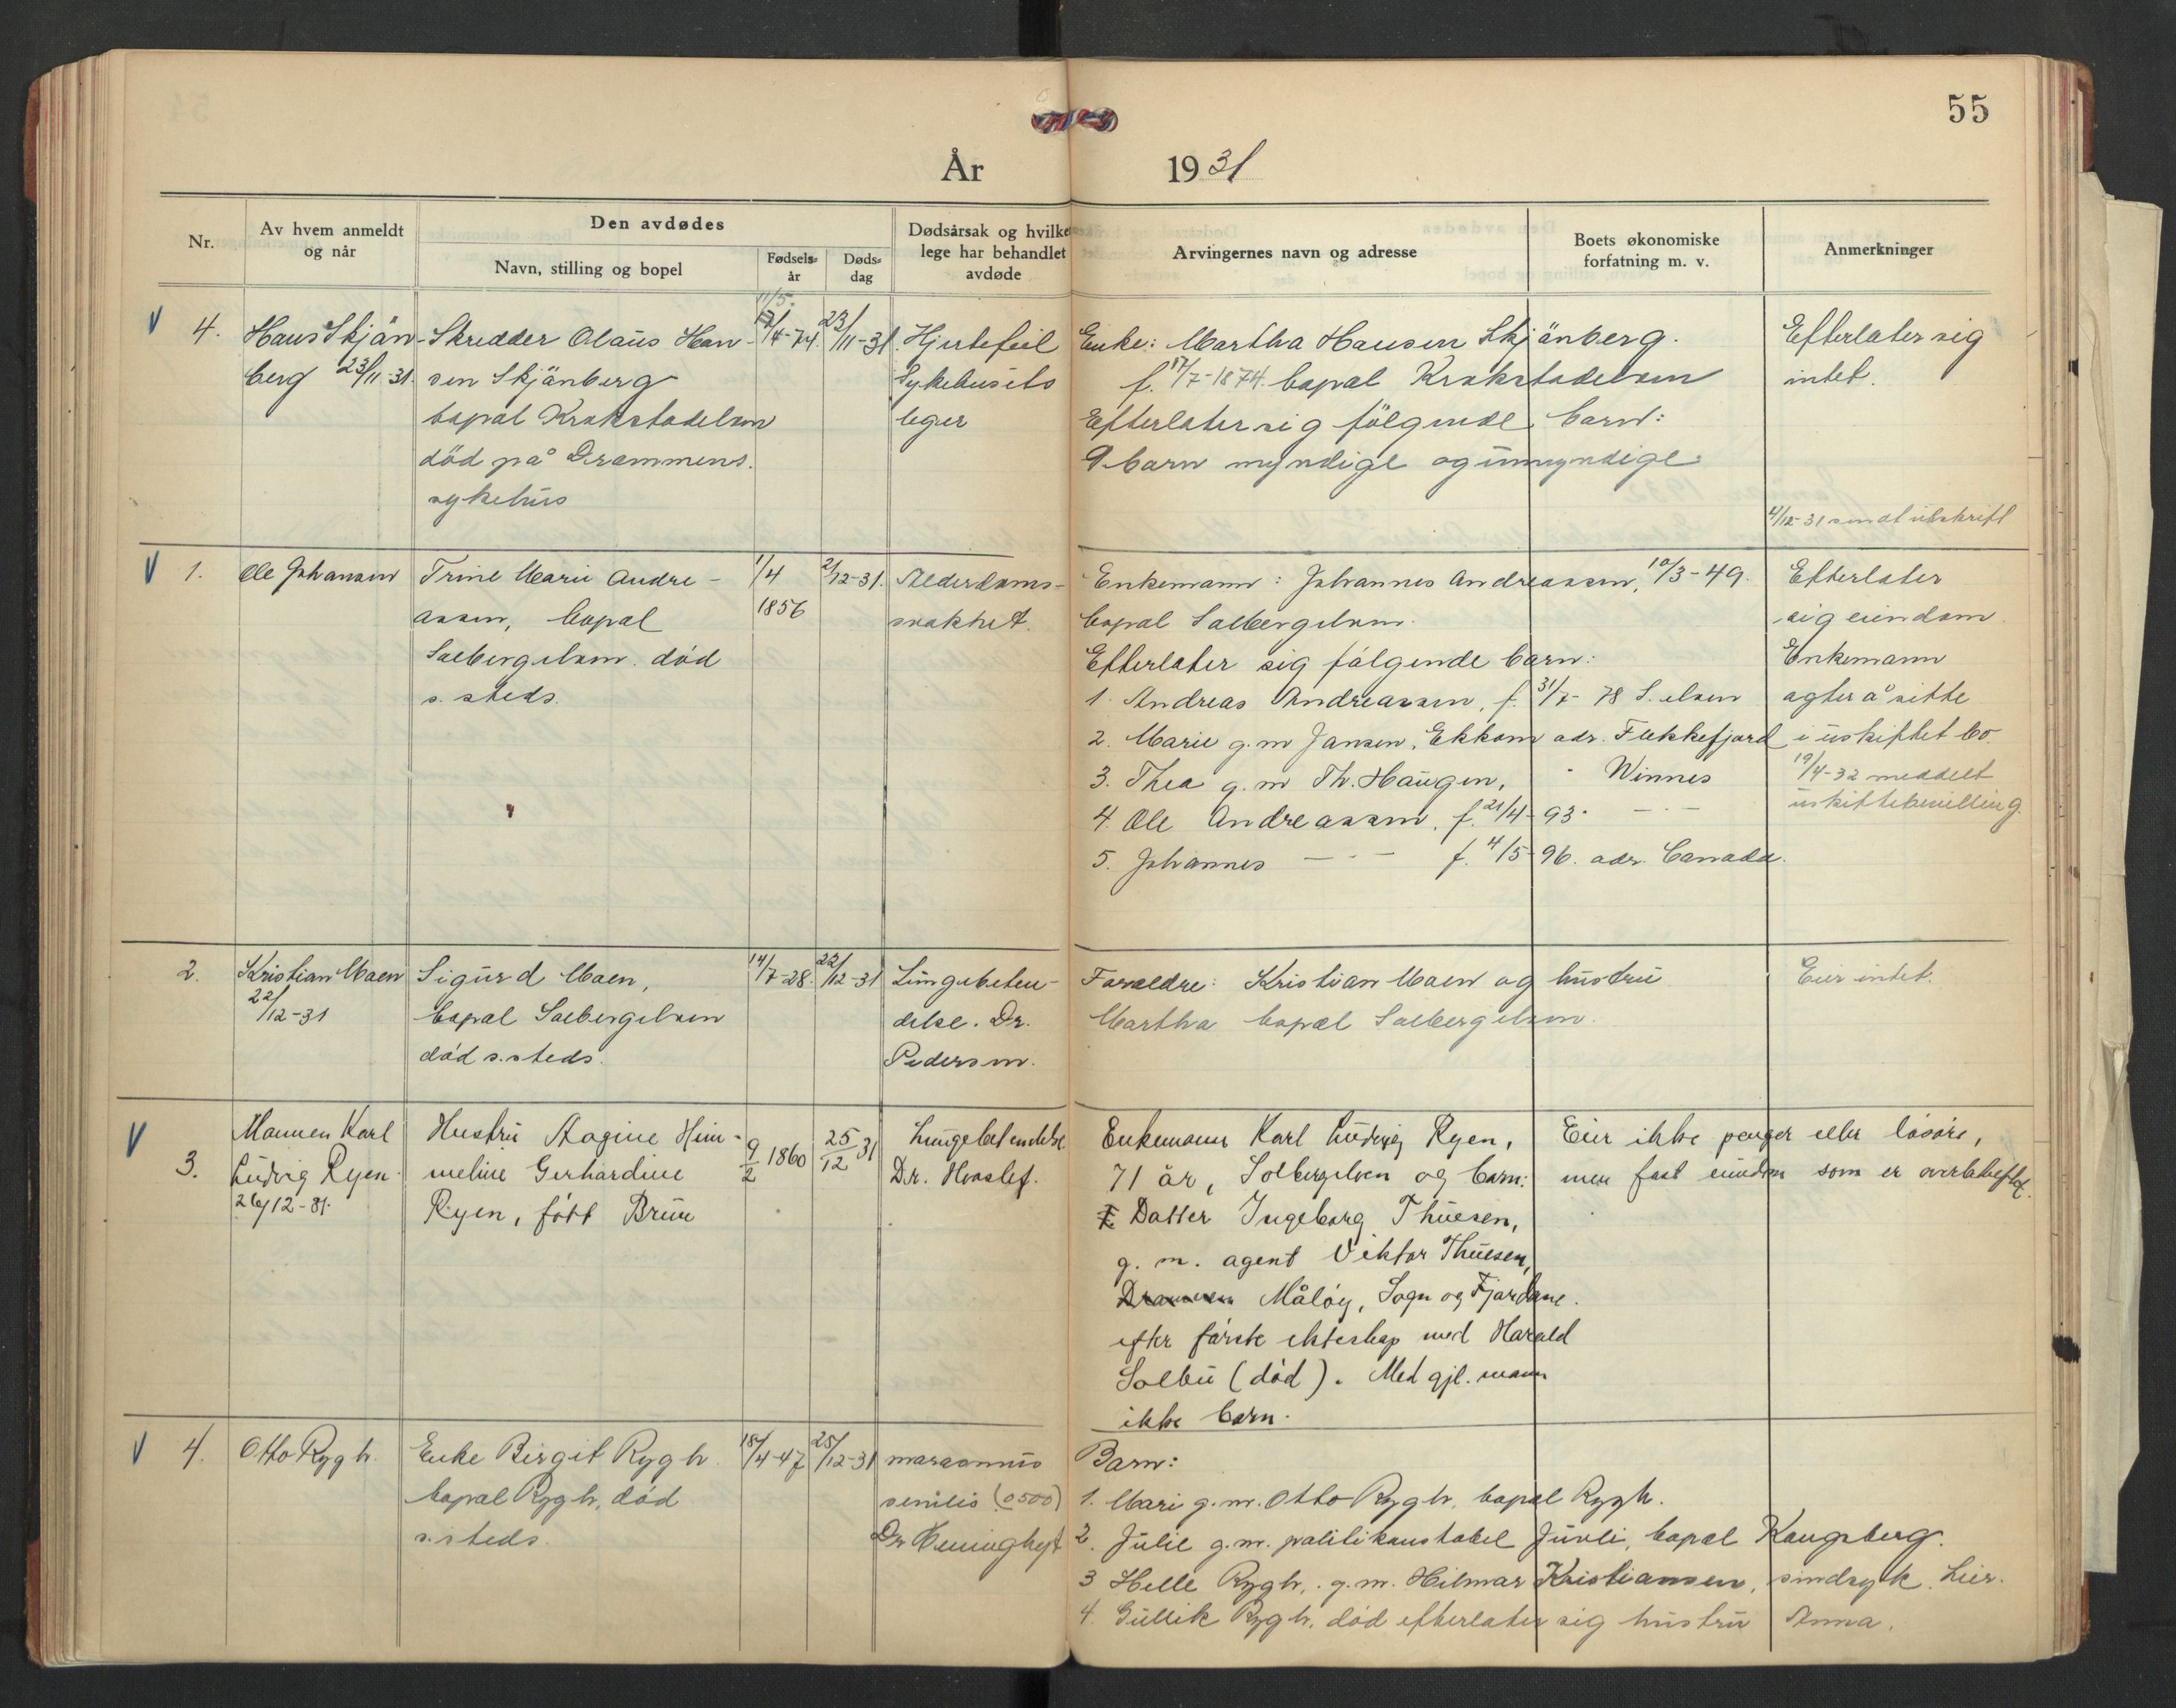 55
År 1931
Nr.
Av hvem anmeldt
og når
Den avdødes
Navn, stilling og bopel
Fødsels-
år
Døds-
dag
Dødsårsak og hvilke
lege har behandlet
avdøde
Arvingernes navn og adresse
Boets økonomiske
forfatning m. v.
Anmerkninger
V 4.
Hans Skjän-
berg 23/11-31.
Skredder Olaus Han-
sen Skjänberg
bopal Krokstadelven
död på Drammens.
sykehus
11/5-
/4-74.
23/11-31.
Hjertefeil
Sykehusets
leger
Enke: Martha Hansen Skjänberg.
f. 17/7-1874. bopal Krokstadelven
Efterlater sig fölgende barn:
9 barn myndige og umyndige.
Efterlater sig
intet.
4/12-31 sendt utskrift
V 1.
Ole Johansen
Trine Marie Andre-
assen, bopal
Solbergelven. död
s. steds.
1/4
1856
2/12-31.
Alderdoms-
svakhet.
Enkemann: Johannes Andreassen, 10/3-49.
bopal Solbergelven.
Efterlater sig fölgende barn:
1. Andreas Andreassen, f. 31/7-78 S. elven
2. Marie g.m Jansen, Ekkom adr. Flekkefjord
3. Thea g.m Th. Haugen, " Winnes
4. Ole Andreassen. f. 21/4-93. — " —
5. Johannes — " — f. 4/5-96. adr. Canada.
Efterlater
sig eiendom.
Enkemann
agter å sitte
i uskiftet bo.
19/4-32 meddelt
uskiftebevilling.
2.
Kristian Moen
22/12-31
Sigurd Moen,
bopal Solbergelven
död s. steds.
14/7-28.
22/12-31
Lungebeten-
delse. Dr.
Pedersen.
Foraeldre: Kristian Moen og hustru
Martha bopal Solbergelven.
Eier intet.
V 3.
Mannen Karl
Ludvig Ryen.
26/12-31.
Hustru Aagine Him-
meline Gerhardine
Ryen, født Brun
9/2 1860
25/12 31
Lungebetendelse
Dr. Hvoslef.
Enkemann Karl Ludvig Ryen,
71 år, Solbergelven og barn:
Datter Ingeborg Thuesen,
g. m. agent Viktor Thuesen,
Drammen Måløy, Sogn og Fjordane.
efter første ekteskap med Harald
Solbu (død). Med gjl. mann
ikke barn.
Eier ikke penger eller løsøre,
men fast eiendom som er overbeheftet.
V 4.
Otto Rygh.
Enke Birgit Rygh.
bopal Rygh, död
s. steds.
18/4-47
25/12-31
marasmus
senilis (0500)
Dr
Barn:
1. Mari g.m. Otto Rygh, bopal Rygh.
2. Julie g.m. politikonstabel Juvli, bopal Kongsberg.
3 Helle Rygh, g.m. Hilmar Kristiansen, sindsyk. Lier.
4. Gullik Rygh, död efterlater sig hustru Anna.